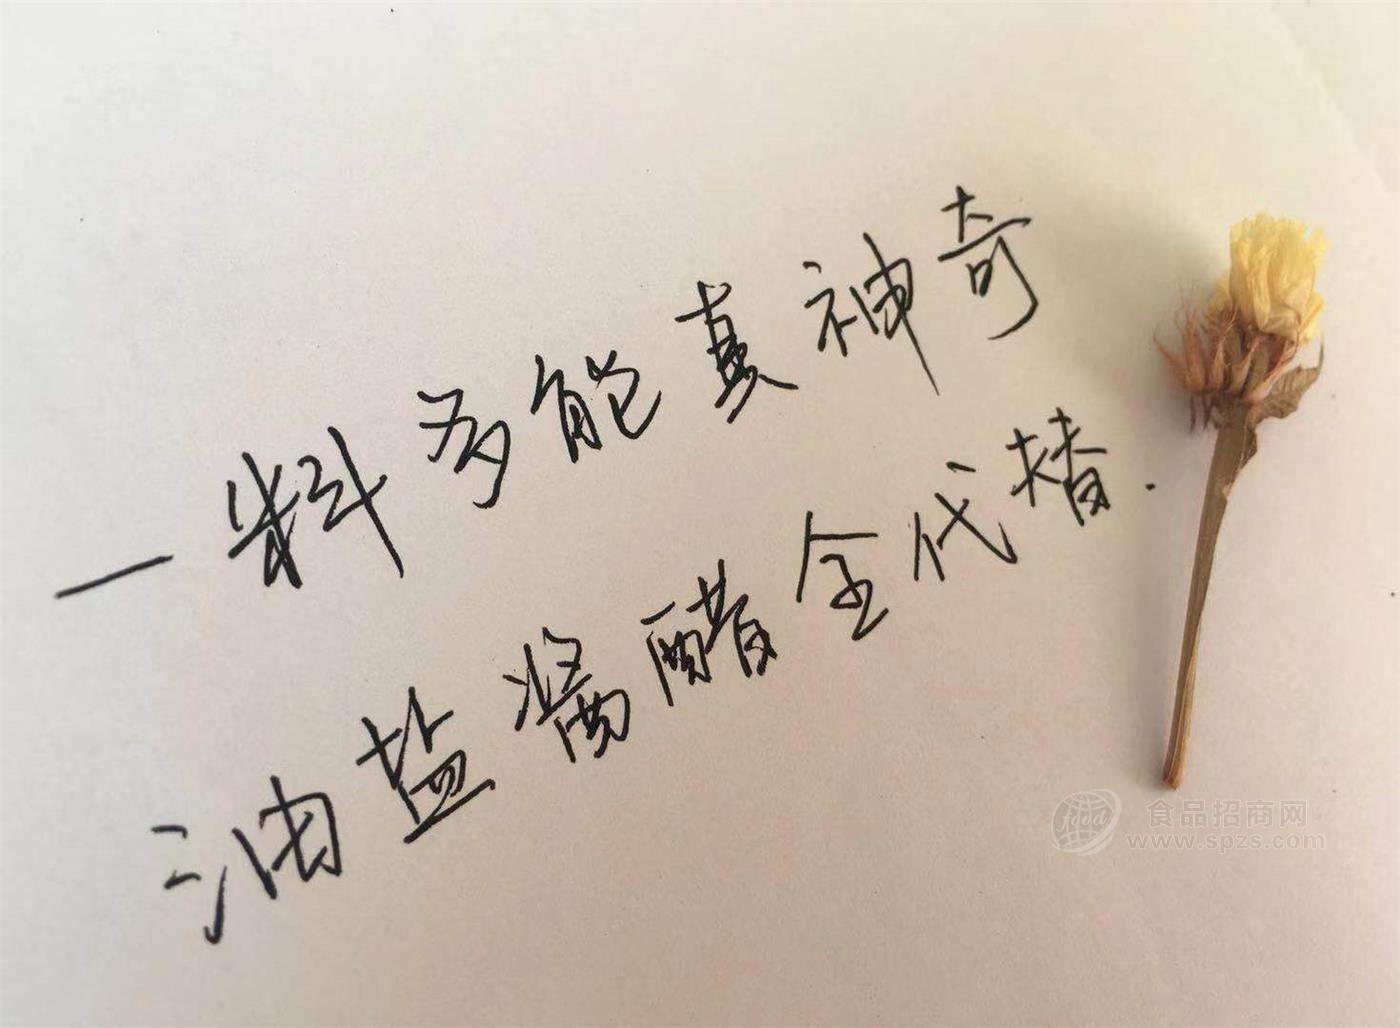 一料多能真神奇
油盐酱醋全代替.
食品招商网
www.spzs.com